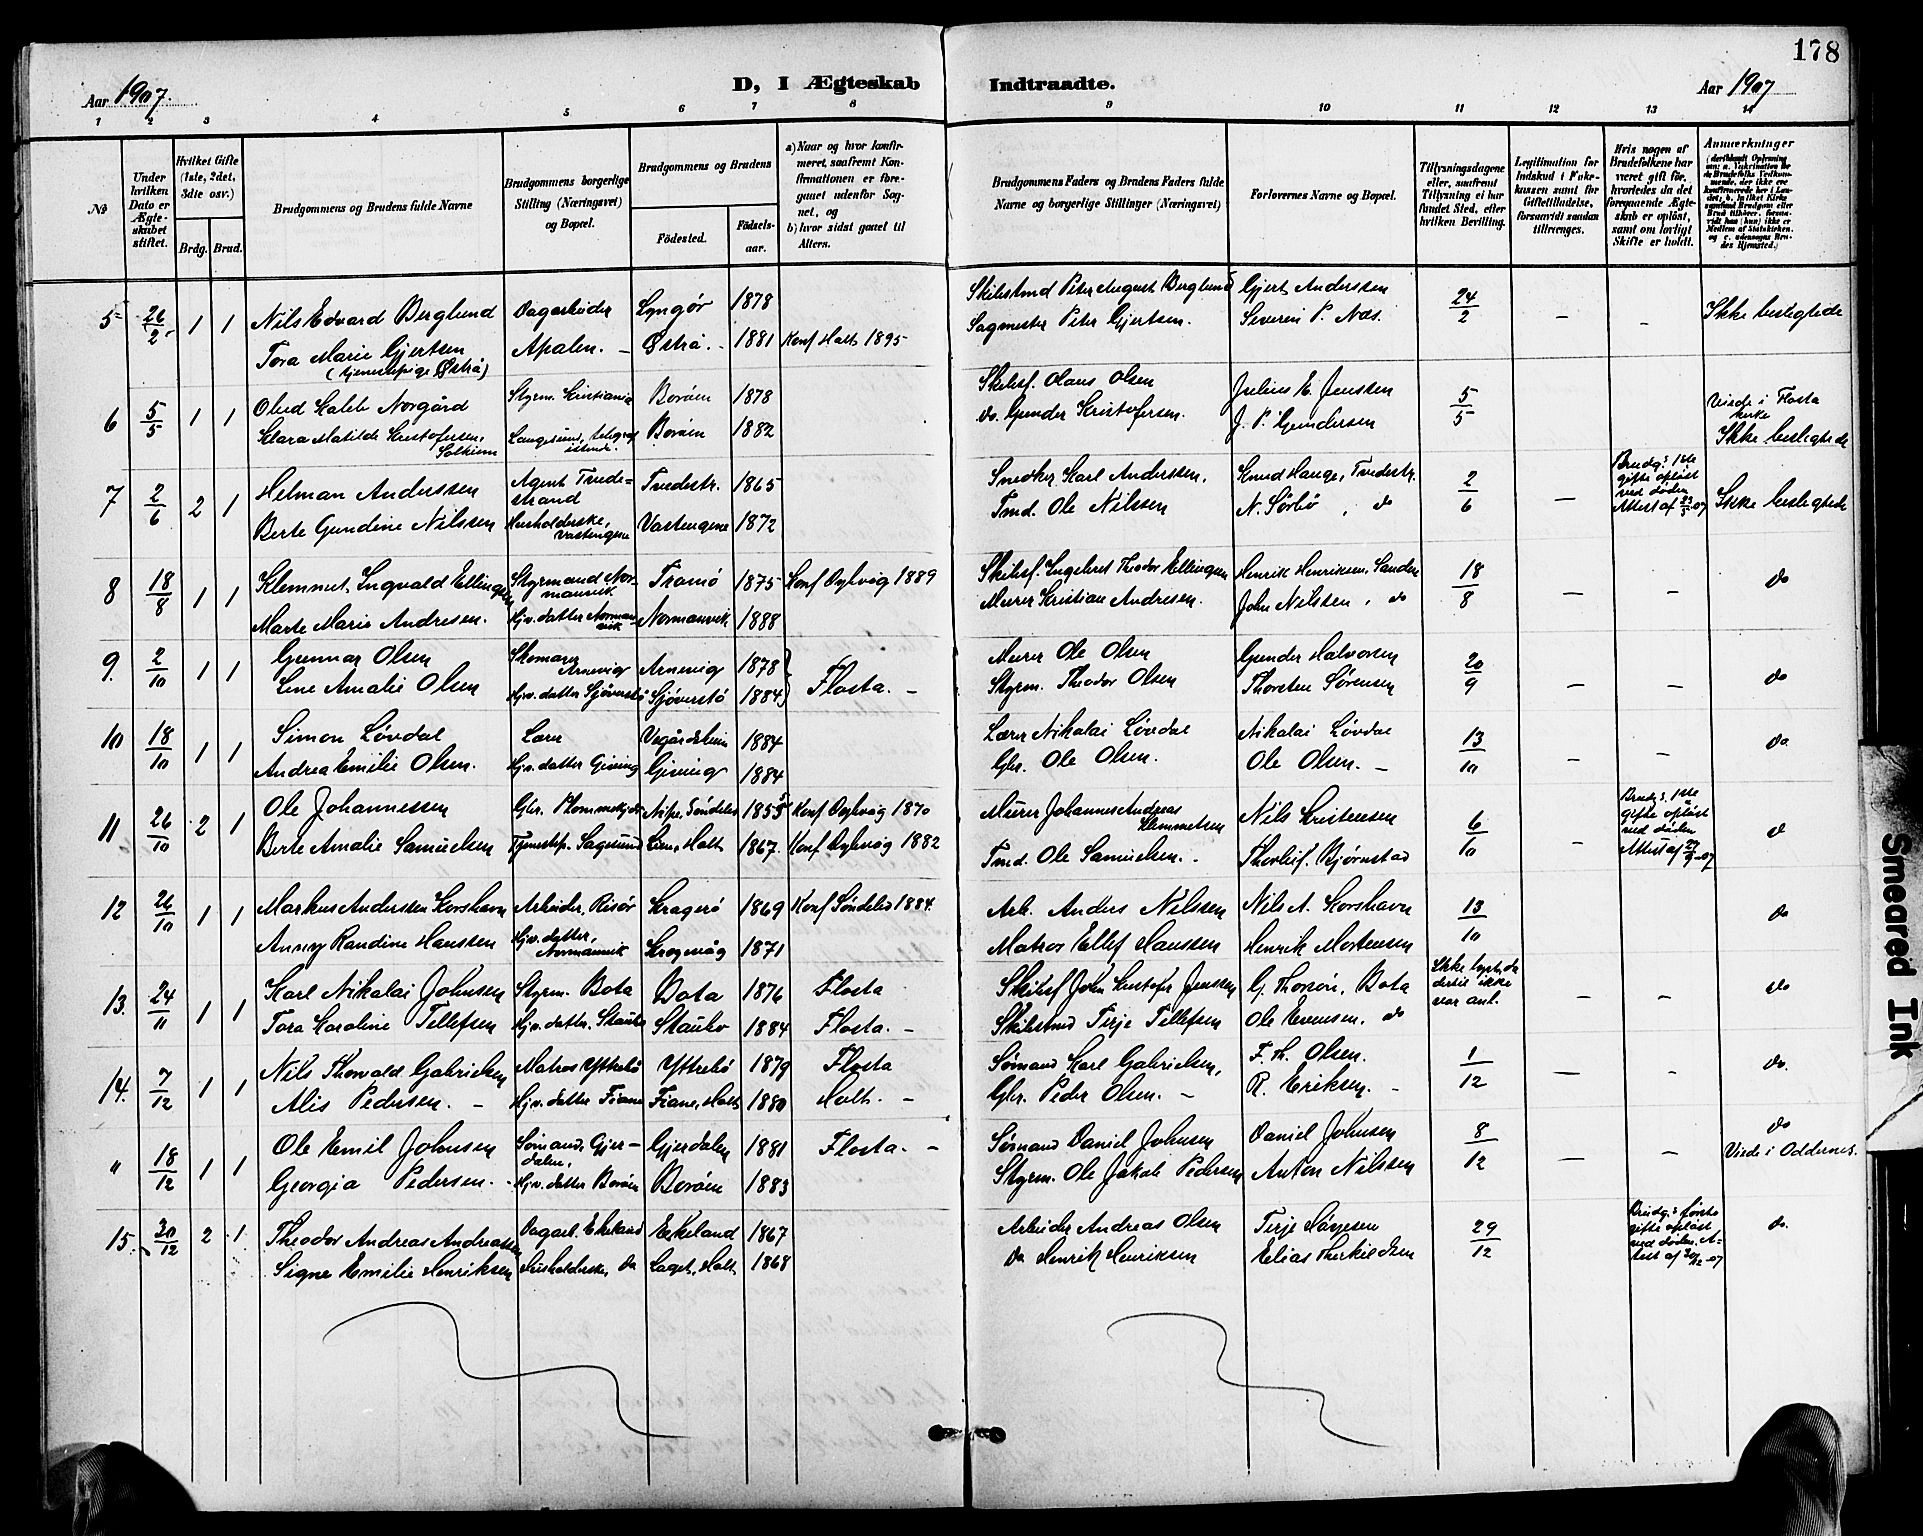 178
Aar 1907.
D, I Ægteskab Indtraadte.
Aar 1907
1 2 3 4 5 6 7 8 9 10 11 12 13 14
No
Under hvilken Dato er Ægteskabet stiftet.
Hvilket Gifte (1ste, 2det, 3die osv.)
Brdg. Brud.
Brudgommens og Brudens fulde Navne
Brudgommens borgerlige Stilling (Næringsvei) og Bopæl.
Brudgommens og Brudens
Fødested.
Fødselsaar.
a) Naar og hvor konfirmeret, saafremt Konfirmationen er foregaaet udenfor Sognet, og
b) hvor sidst gaaet til Alters.
Brudgommens Faders og Brudens Faders fulde Navne og borgerlige Stillinger (Næringsvei)
Forlovernes Navne og Bopæl.
Tillysningsdagene eller, saafremt Tillysning ei har fundet Sted, efter hvilken Bevilling.
Legitimation for Indskud i Enkekassen samt for Giftetilladelse, forsaavidt saadan tiltrænges.
Hvis nogen af Brudefolkene har været gift før, hvorledes da det foregaaende Ægteskab er opløst, samt om lovligt Skifte er holdt.
Anmerkninger
5 26/2 1 1 Nils Edvard Berglund Dagarbeider Lyngør 1878 Skibstmd Peter August Berglund Gjert Anderssen 24/2 – – Ikke beslegtede
Tora Marie Gjertsen Apalen. – Østrå. – 1881 Konf Holt 1895 Sagmester Peter Gjertsen. Severin P. Næs.
(tjenestepige Østrå)
6 5/5 1 1 Obed Kaleb Norgård Styrm. Kristiania Borøen 1878 Skibsf. Olaus Olsen Julius E. Jenssen 5/5 Viede i Flosta kirke
Klara Matilde Kristofersen, Langesund, telegrafistinde. Borøen 1882 do. Gunder Kristofersen. J. P. Gundersen Ikke beslegtede
7 2/6 2 1 Helman Anderssen Agent Tvedestrand Tvedestr. 1865 Snedker Karl Anderssen, Knud Hauge, Tvedestr. 2/6 – Brudg.s 1ste gifte opløst ved døden Attest af 23/5-07 Ikke beslegtede
Berte Gundine Nilssen Husholderske, Vastengene Vastengene 1872 Tmd. Ole Nilssen N. Sørbø, do
8 18/8 1 1 Klemmet Ingvald Ellingsen Styrmand Normansvik Tromø 1875 Konf Dybvåg 1889 Skibsf. Ingebret Theodor Ellingsen Henrik Henriksen, Sanden 18/8 – – do
Marte Marie Andresen. Hjv. datter Normansvik Normansvik 1888 Murer Kristian Andresen. John Nilssen, do
9. 2/10 1 1 Gunnar Olsen Skomager Arnevig Arnevig 1878 Flosta. – Murer Ole Olsen Gunder Halvorsen 20/9 – – do
Line Amalie Olsen Hjv. datter Sjøverstø Sjøverstø 1884 Styrm. Theodor Olsen Thorsten Sørensen
10 18/10 1 1 Simon Løvdal Lærer Vegårdsheien 1884 Lærer Nikolai Løvdal Nikolai Løvdal 13/10 – – do.
Andrea Emilie Olsen. Hjv. datter Giving Giving 1884 Gbr. Ole Olsen. Ole Olsen. –
11 26/10 2 1 Ole Johannessen Gbr. Søndeled 1855 Konf Dybvåg 1870 Murer Johannes Andreas Klemmetsen Nils Kristensen 6/10 – Brudg.s 1ste gifte opløst ved døden Attest af 27/9-07 d
Berte Amalie Samuelsen Tjenestep. Sagesund Holt 1867. Konf Dybvåg 1882 Tmd. Ole Samuelsen. Thorleif Bjørnstad
12 26/10 1 1 Markus Anderssen Korshavn Arbeider, Risør Kragerø 1869 Konf Søndeled 1884. Arb. Anders Nilssen Nils A. Korshavn 13/10 do
Anny Randine Hanssen Hjv. datter, Normansvik Krogvåg 1871 Matros Ellef Hanssen Henrik Mortensen
13. 24/11 1 1 Karl Nikolai Johnsen Styrm. Bota Bota 1876 Flosta Skibsf John Kristofer Jenssen G. Thorsøn, Bota Ikke lyst, da dette ikke var anl. – – do
Tora Karoline Tellefsen Hjv. datter, Staubø Staubø 1884 Flosta. – Skibstmd Terje Tellefsen Ole Evensen, do
14. 7/12 1 1 Nils Thorvald Gabrielsen Matros Yttrebø Yttrebø 1879 Flosta Sømand Karl Gabrielsen, F. Th. Olsen. 1/12 – – do.
Alis Pedersen. – Hjv. datter Fiane Fiane, Holt 1880 Holt. – Gbr. Peder Olsen. – R. Eriksen. –
" 18/12 1 1 Ole Emil Johnsen Sømand, Gjerdalen, Gjerdalen 1881 Flosta. – Sømand Daniel Johnsen Daniel Johnsen 8/12 – – do Viede i Oddernes.
Georgia Pedersen. Hjv. datter Borøen Borøen 1883 Styrm. Ole Jakob Pedersen Anton Nilssen
15. 30/12 2 1 Theodor Andreas Andreassen Dagarb. Ekeland Ekeland 1867 Arbeider Andreas Olsen Terje Høyesen 29/12 Brudg.s første gifte opløst ved døden. Attest af 30/12-07 do.
Signe Emilie Henriksen Husholderske, do Laget, Holt 1868 do Henrik Henriksen Elias Therkildsen
Smeared Ink